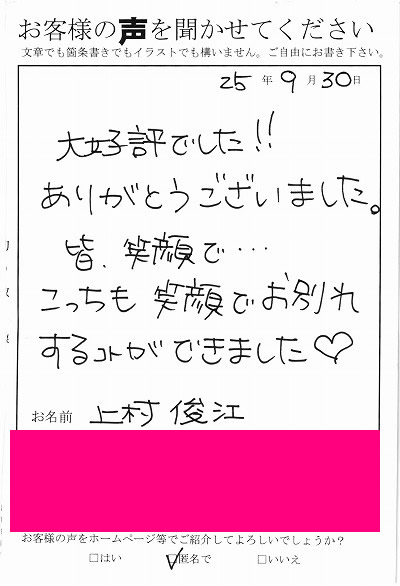 お客様の声を聞かせてください
文章でも箇条書きでもイラストでも構いません。ご自由にお書き下さい。
25 年 9 月 30 日
大好評でした!!
ありがとうございました。
皆、笑顔で…
こっちも笑顔でお別れ
するコトができました♡
お名前 上村 俊江
お客様の声をホームページ等でご紹介してよろしいでしょうか?
□はい ☑匿名で □いいえ